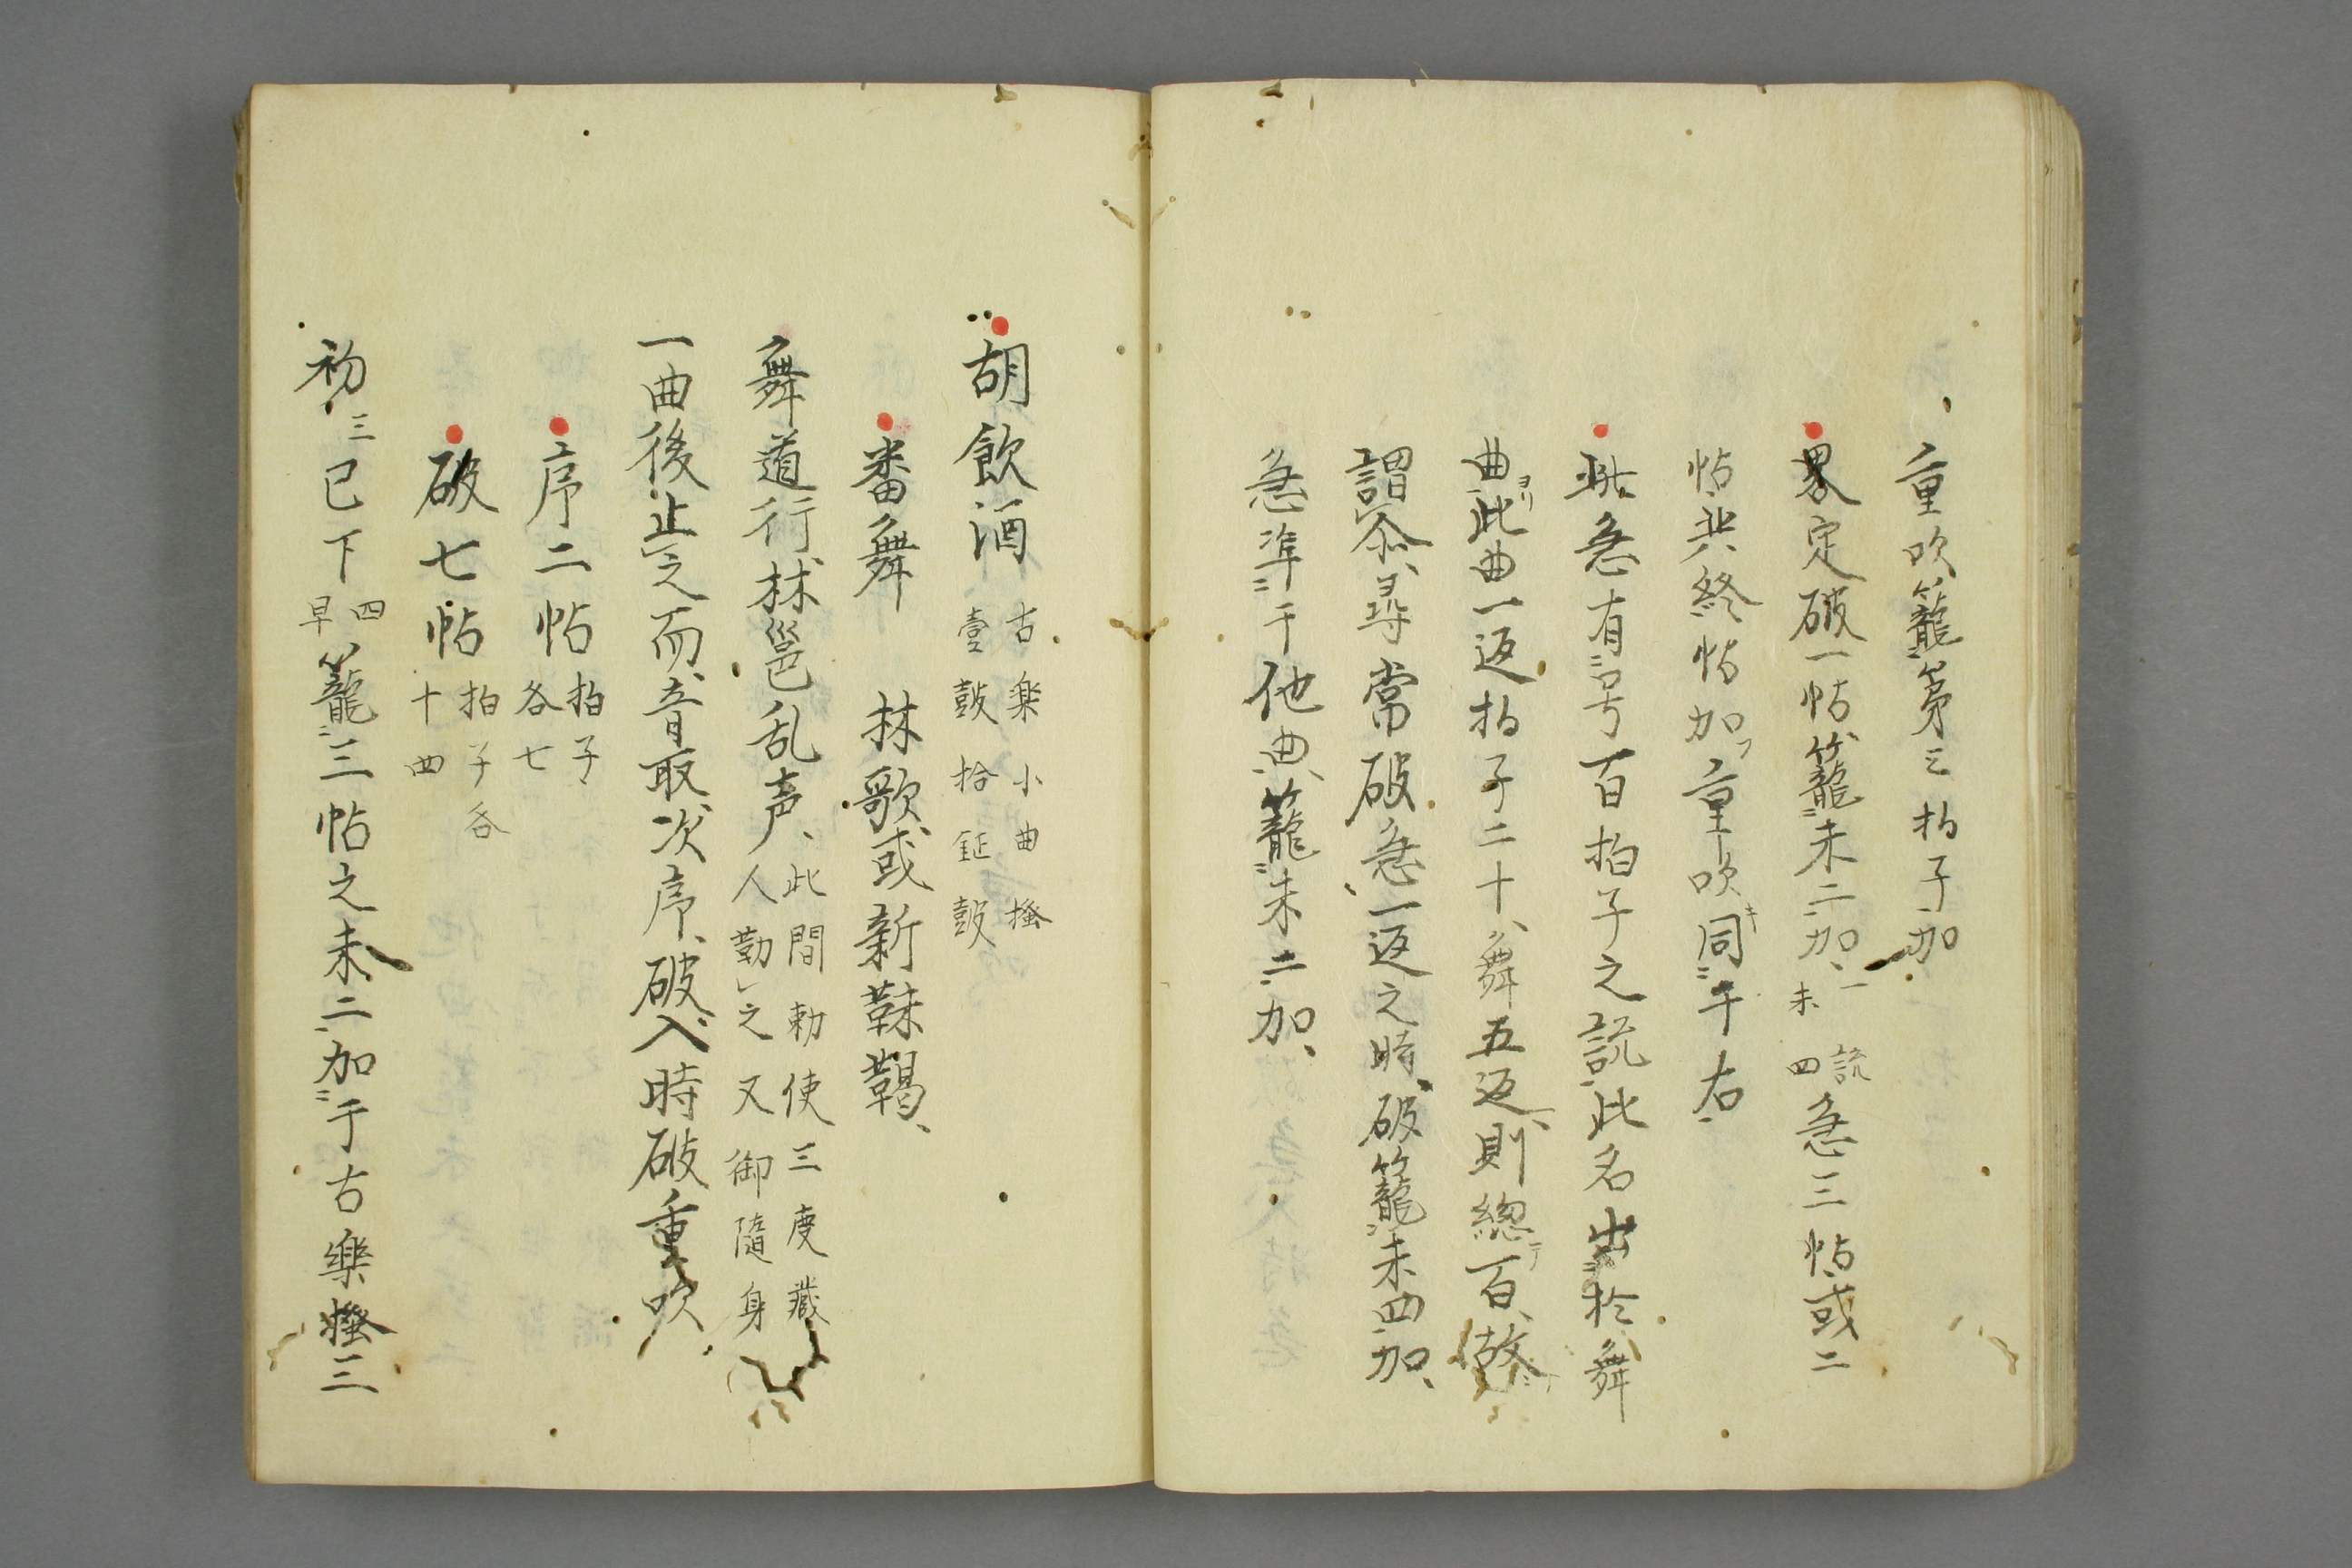 重吹、籠第三拍子加
略定破一帖、籠未二加、一説未四急三帖、或二
帖、共終帖加フ重吹キ同ニ于右
此急有ニ号百拍子之説、此名出ニ於舞
曲ヨリ、此曲一返拍子二十、舞五返、則總テ百、故ニ
謂尓、尋常破急一返之時、破籠未四加、
急準ニ于他曲、籠未二加、
胡飲酒 古楽小曲掻壹鼓拾鉦鼓
番舞 林歌、或新靺鞨、
舞道行、林邑乱声、此間勅使三度蔵人勤之又御隨身
一曲後止之而、音取、次序、破、入時破重吹、
序二帖 拍子各七
破七帖 拍子各十四
初三已下四早籠三帖之未、二加ニ于古樂掻三